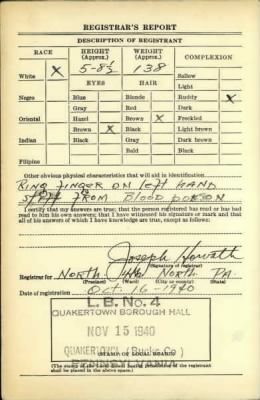 REGISTRAR'S REPORT
DESCRIPTION OF REGISTRANT
RACE HEIGHT (Approx.) WEIGHT (Approx.) COMPLEXION
White X 5-8½ 138 Sallow
EYES HAIR Light
Negro Blue Blonde Ruddy X
Gray Red Dark
Oriental Hazel Brown X Freckled
Brown X Black Light brown
Indian Black Gray Dark brown
Bald Black
Filipino
Other obvious physical characteristics that will aid in identification
RING FINGER ON left HAND
STIFF FROM BLOOD POISON
I certify that my answers are true; that the person registered has read or has had
read to him his own answers; that I have witnessed his signature or mark and that
all of his answers of which I have knowledge are true, except as follows:
Joseph Howath
(Signature of registrar)
Registrar for NORTH NORTH PA.
(Precinct) (Ward) (City or county) (State)
Date of registration Oct 16-1940
L.B. No. 4
QUAKERTOWN BOROUGH HALL
NOV 15 1940
QUAKERTOWN (Bucks Co.)
PENNSYLVANIA
(STAMP OF LOCAL BOARD)
shall be placed in the above space.)